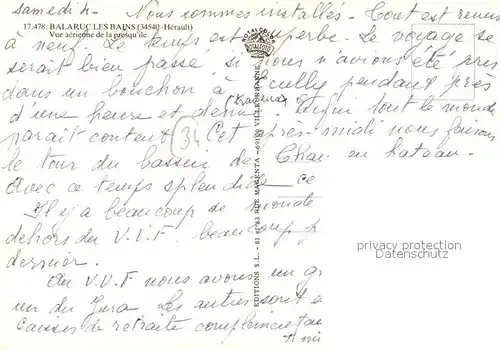 samedi 4- Nous sommes installés - Tout est remis
17.478. BALARUC LES BAINS (34540-Hérault)
Vue aérienne de la presqu'île
à neuf. Le temps est superbe. Le voyage se
serait bien passé si nous n'avions été pris
dans un bouchon à Ecully pendant près
d'une heure et demie. Enfin tout le monde
paraît content. Cet après-midi nous faisons
34
le tour du bassin de Thau en bateau.
Avec ce temps splendide ce
Il y a beaucoup de monde
dehors du V.V.F. beaucoup p
dernier.
Au V.V.F nous avons un gr
un du Jura Les autres sont
caisses de retraite complémentai
EDITIONS S.L. - 81 et 83 RUE MAGENTA - 69100 VILLEURBANNE
privacy protection
DARNAULT.COM